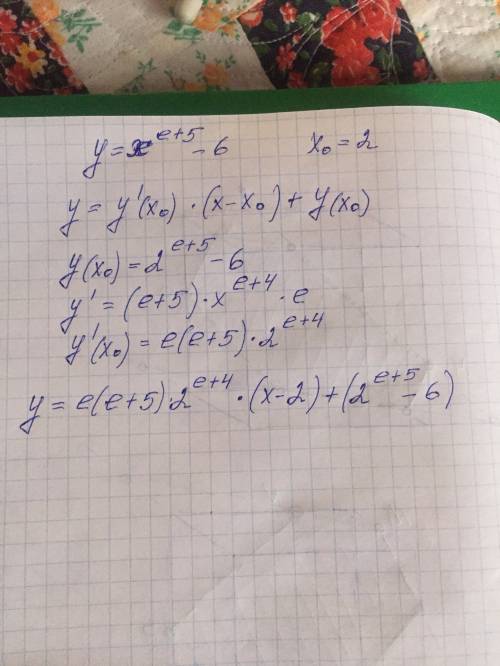 y = x^{e+5} - 6 x₀ = 2
y = y'(x₀) · (x - x₀) + y(x₀)
y(x₀) = 2^{e+5} - 6
y' = (e+5) · x^{e+4} · e
y'(x₀) = e(e+5) · 2^{e+4}
y = e(e+5) · 2^{e+4} · (x-2) + (2^{e+5} - 6)